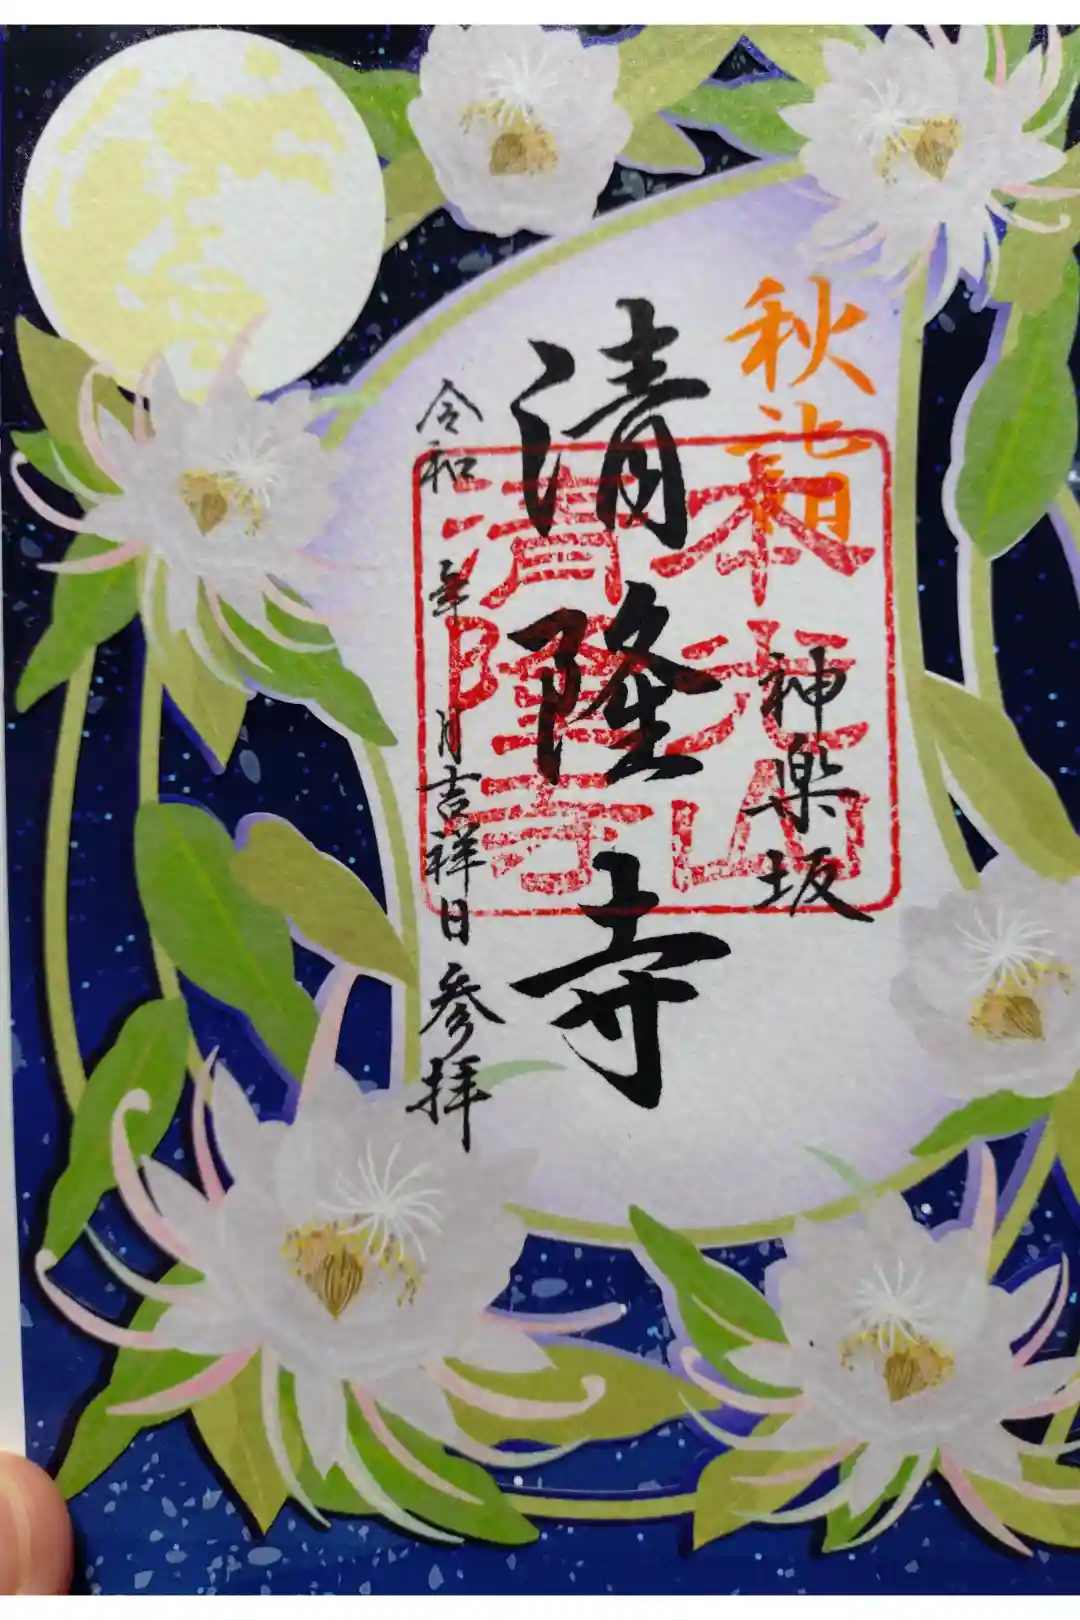 秋詣
神楽坂
清隆寺
令和 年 月吉祥日参拝
本光山
清隆寺